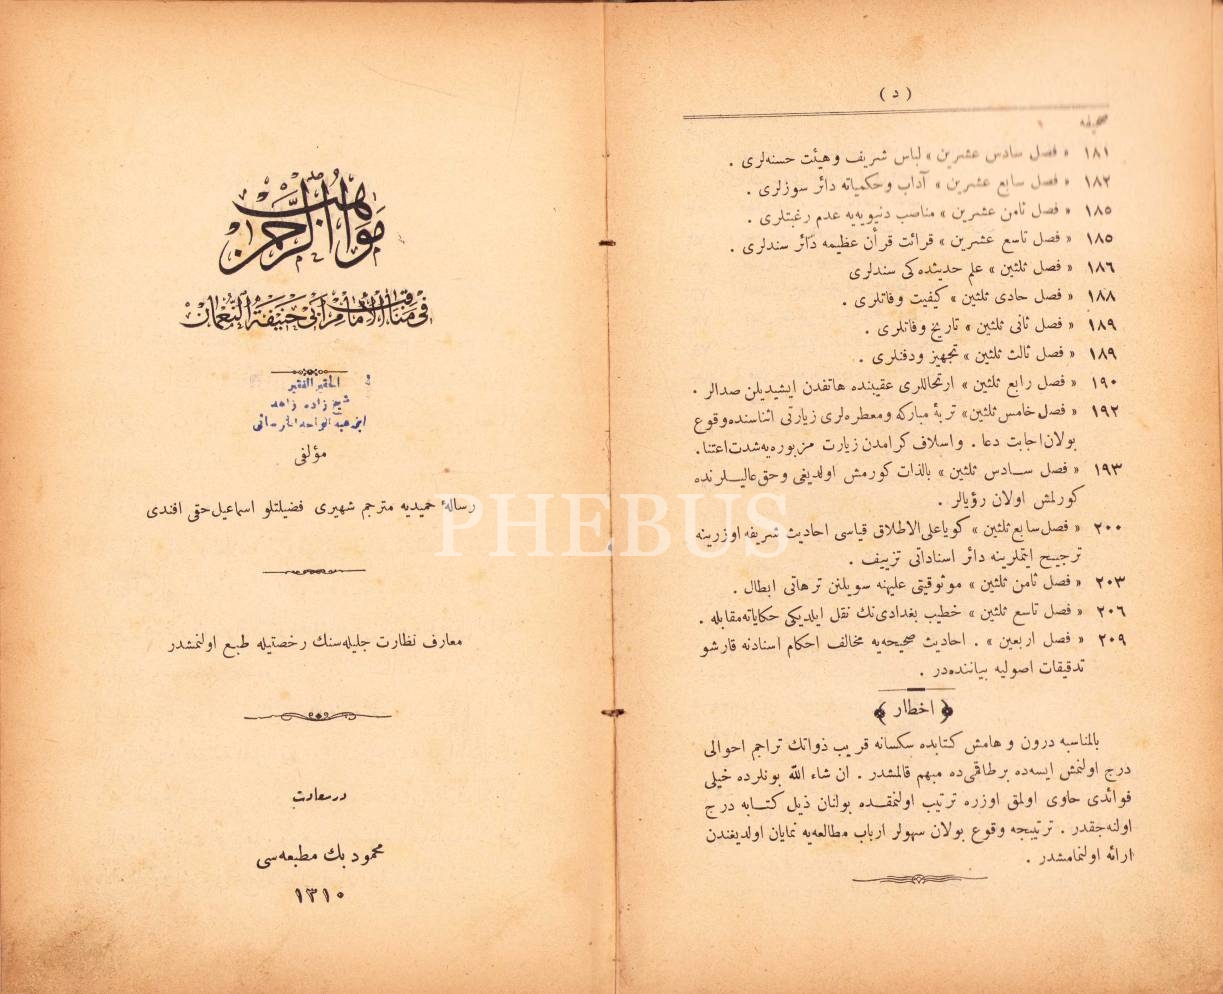 ( د )
صحیفه
١٨١ « فصل سادس عشرین » لباس شریف وهیئت حسنه‌لری .
١٨٢ « فصل سابع عشرین » آداب وحکمیاته دائر سوزلری .
١٨٥ « فصل ثامن عشرین » مناصب دنیویه‌یه عدم رغبتلری .
١٨٥ « فصل تاسع عشرین » قرائت قرأن عظیمه دائر سندلری .
١٨٦ « فصل ثلثین » علم حدیثده کی سندلری
١٨٨ « فصل حادی ثلثین » کیفیت وفاتلری .
١٨٩ « فصل ثانی ثلثین » تاریخ وفاتلری .
١٨٩ « فصل ثالث ثلثین » تجهیز ودفنلری .
١٩٠ « فصل رابع ثلثین » ارتحاللری عقیبنده هاتفدن ایشیدیلن صدالر .
١٩٢ « فصل خامس ثلثین » تربۀ مبارکه ومعطره‌لری زیارتی اثناسنده وقوع
بولان اجابت دعا . واسلاف کرامدن زیارت مزبوره‌یه شدت اعتنا .
١٩٣ « فصل سادس ثلثین » بالذات کورمش اولدیغی وحق عالیلرنده
کورلمش اولان رؤیالر .
٢٠٠ « فصل سابع ثلثین » کویا علی الاطلاق قیاسی احادیث شریفه اوزرینه
ترجیح ایتملرینه دائر اسناداتی تزییف .
٢٠٣ « فصل ثامن ثلثین » موثوقیتی علیهنه سویلنن ترهاتی ابطال .
٢٠٦ « فصل تاسع ثلثین » خطیب بغدادی‌نك نقل ایلدیکی حکایاته مقابله .
٢٠٩ « فصل اربعین » . احادیث صحیحه‌یه مخالف احکام اسنادنه قارشو
تدقیقات اصولیه بیاننده‌در .
﴿ اخطار ﴾
بالمناسبه درون و هامش کتابده سکسانه قریب ذواتك تراجم احوالی
درج اولنمش ایسه‌ده برطاقمی‌ده مبهم قالمشدر . ان شاء الله بونلرده خیلی
فوائدی حاوی اولمق اوزره ترتیب اولنمقده بولنان ذیل کتابه درج
اولنه‌جقدر . ترتیبجه وقوع بولان سهولر ارباب مطالعه‌یه نمایان اولدیغندن
ارائه اولنمامشدر .
مَوَاهِبُ الرَّحْمٰن
فی مناقب الامام ابی حنیفة النعمان
الحقیر الفقیر
شیخ زاده زاهد
مؤلفی
رسالۀ حمیدیه مترجم شهیری فضیلتلو اسماعیل حقی افندی
معارف نظارت جلیله‌سنك رخصتیله طبع اولنمشدر
درسعادت
محمود بك مطبعه‌سی
١٣١٠
PHEBUS